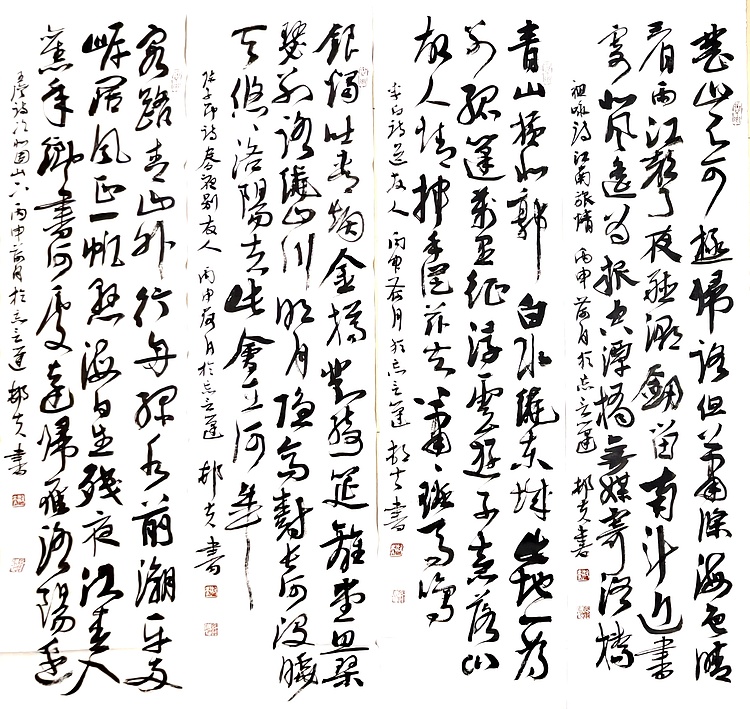 楚山不可極歸路但蕭條海色晴
看雨江聲夜聽潮劍留南斗近書
寄北風遙為報空潭橘無媒寄洛橋
祖咏詩江南旅情 丙申荷月於忘言 書
青山橫北郭白水繞東城此地一為
別孤蓬萬里征浮雲遊子意落日
故人情揮手自茲去蕭〻班馬鳴
李白詩送友人 丙申荷月於忘言 書
銀燭吐青烟金樽對綺筵離堂思琴
瑟別路繞山川明月隱高樹長河沒曉
天悠〻洛陽去此會在何年
陳子昂詩春夜別友人 丙申荷月於忘言 書
客路青山外行舟綠水前潮平兩
岸闊風正一帆懸海日生殘夜江春入
舊年鄉書何處達歸雁洛陽邊
王灣詩次北固山下 丙申荷月於忘言 書